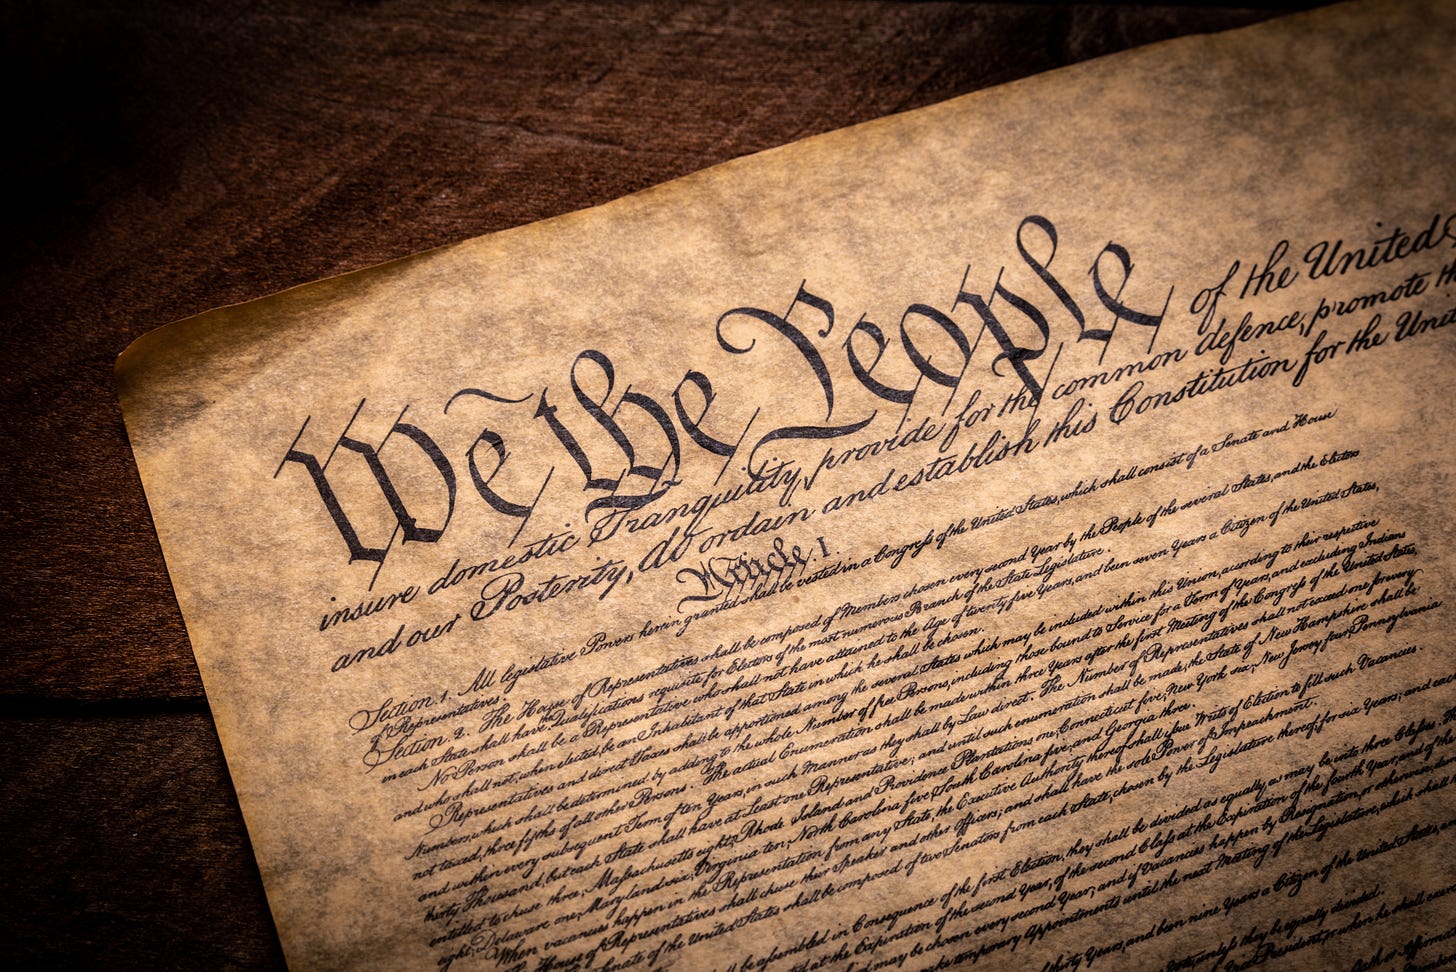 We the People of the United
insure domestic Tranquility, provide for the common defence, promote
and our Posterity, do ordain and establish this Constitution for the
Article. I.
Section. 1. All legislative Powers herein granted shall be vested in a Congress of the United States, which shall consist of a Senate and House
of Representatives.
Section 2. The House of Representatives shall be composed of Members chosen every second Year by the People of the several States, and the Electors
in each State shall have the Qualifications requisite for Electors of the most numerous Branch of the State Legislature.
No Person shall be a Representative who shall not have attained to the Age of twenty five Years, and been seven Years a Citizen of the United States,
and who shall not, when elected, be an Inhabitant of that State in which he shall be chosen.
Representatives and direct Taxes shall be apportioned among the several States which may be included within this Union, according to their respective
Numbers, which shall be determined by adding to the whole Number of free Persons, including those bound to Service for a Term of Years, and excluding Indians
not taxed, three fifths of all other Persons. The actual Enumeration shall be made within three Years after the first Meeting of the Congress of the United States,
and within every subsequent Term of ten Years, in such Manner as they shall by Law direct. The Number of Representatives shall not exceed one for every
thirty Thousand, but each State shall have at Least one Representative; and until such enumeration shall be made, the State of New Hampshire shall be
entitled to chuse three, Massachusetts eight, Rhode Island and Providence Plantations one, Connecticut five, New York six, New Jersey four, Pennsylvania
eight, Delaware one, Maryland six, Virginia ten, North Carolina five, South Carolina five, and Georgia three.
When vacancies happen in the Representation from any State, the Executive Authority thereof shall issue Writs of Election to fill such Vacancies.
House of Representatives shall chuse their Speaker and other Officers; and shall have the sole Power of Impeachment.
of the United States shall be composed of two Senators from each State, chosen by the Legislature thereof, for six Years; and
assembled in Consequence of the first Election, they shall be divided as equally as may be into three Classes.
at the Expiration of the second Year, of the second Class at the Expiration of the fourth Year, and of the
may be chosen every second Year; and if Vacancies happen by Resignation, or otherwise,
make temporary Appointments until the next Meeting of the Legislature, which shall
thirty Years, and been nine Years a Citizen of the United States,
unless they be equally divided.
President, or when he shall